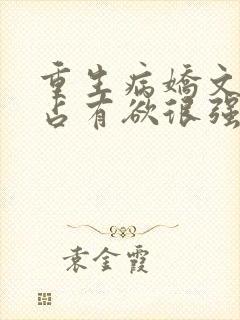 重生病嬌文
占有欲很强
袁金霞